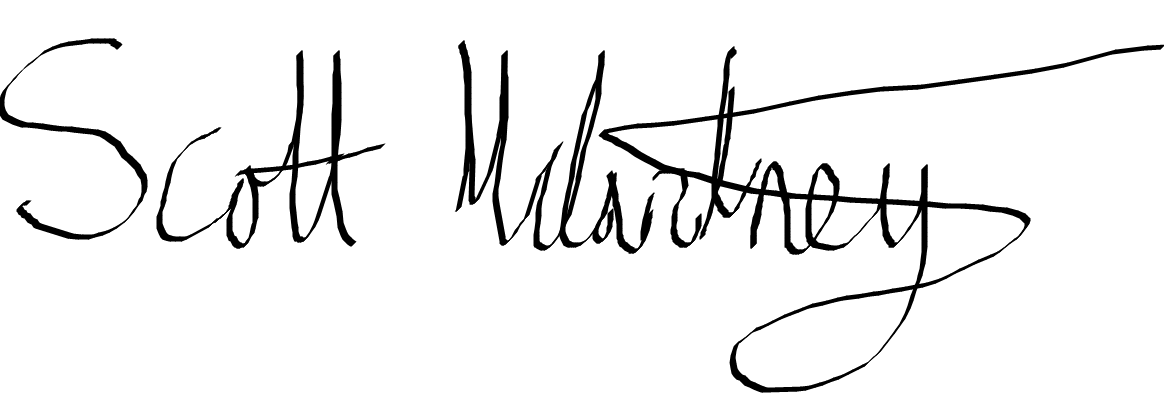 Scott McCartney